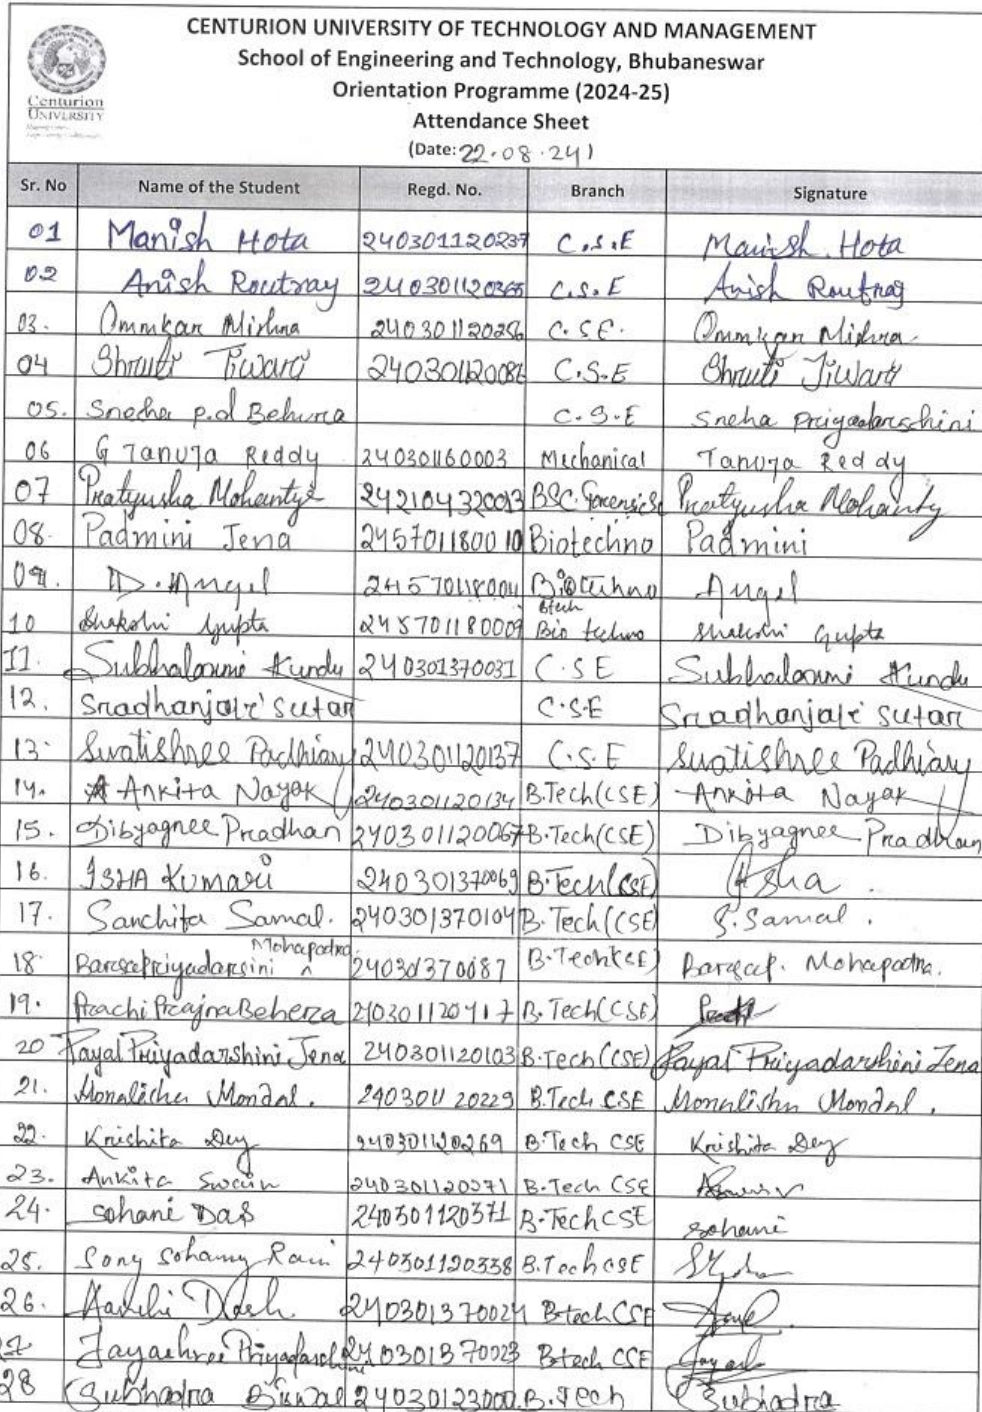 CENTURION UNIVERSITY OF TECHNOLOGY AND MANAGEMENT
School of Engineering and Technology, Bhubaneswar
Orientation Programme (2024-25)
Attendance Sheet
(Date: 22.08.24)
Centurion
UNIVERSITY
Sr. No Name of the Student Regd. No. Branch Signature
01 Manish Hota 240301120237 C.S.E Manish Hota
02 Anish Routray 240301120365 C.S.E Anish Routray
03. Ommkar Mishra C.S.E. Ommkar Mishra
04 Shruti Tiwari C.S.E Shruti Tiwari
05. Sneha p.d Behura C.S.E Sneha Priyadarschini
06 G Tanuja Reddy 240301160003 Mechanical Tanuja Reddy
07 Pratyusha Mohanty 242104320013 BSC. Pratyusha Mohanty
08. Padmini Jena 245701180010 Biotechno Padmini
09. D. Angel 245701180011 Biotechno Angel
10 Shakshi Gupta 245701180009 Btech Bio techno Shakshi Gupta
11. Subhalaxmi Kundu 240301370031 C.S.E Subhalaxmi Kundu
12. Sradhanjali Sutar C.S.E Sradhanjali Sutar
13. Swatishree Padhiary 240301120137 C.S.E Swatishree Padhiary
14. Ankita Nayak 240301120134 B.Tech(CSE) Ankita Nayak
15. Dibyagnee Pradhan 240301120067 B.Tech(CSE) Dibyagnee Pradhan
16. ISHA Kumari 240301370069 B.Tech(CSE) Isha
17. Sanchita Samal. 240301370104 B.Tech(CSE) S. Samal.
18. Barsapriyadarsini Mohapatra 240301370087 B.Tech(CSE) Mohapatra.
19. Prachi Prajna Behera 240301120417 B.Tech(CSE)
20 Payal Priyadarshini Jena 240301120103 B.Tech(CSE) Payal Priyadarshini Jena
21. Monalisha Mondal. 240301120229 B.Tech CSE Monalisha Mondal.
22. Krishita Dey 240301120269 B.Tech CSE Krishita Dey
23. Ankita Swain 240301120271 B.Tech CSE
24. Sohani Das 240301120371 B.Tech CSE Sohani
25. Sony Sohamy Rani 240301120338 B.Tech CSE
26. Dash 240301370024 B.tech CSE
27 Jayashree Priyadarshini 240301370023 B.tech CSE
28 Subhadra Biswal B.Tech Subhadra